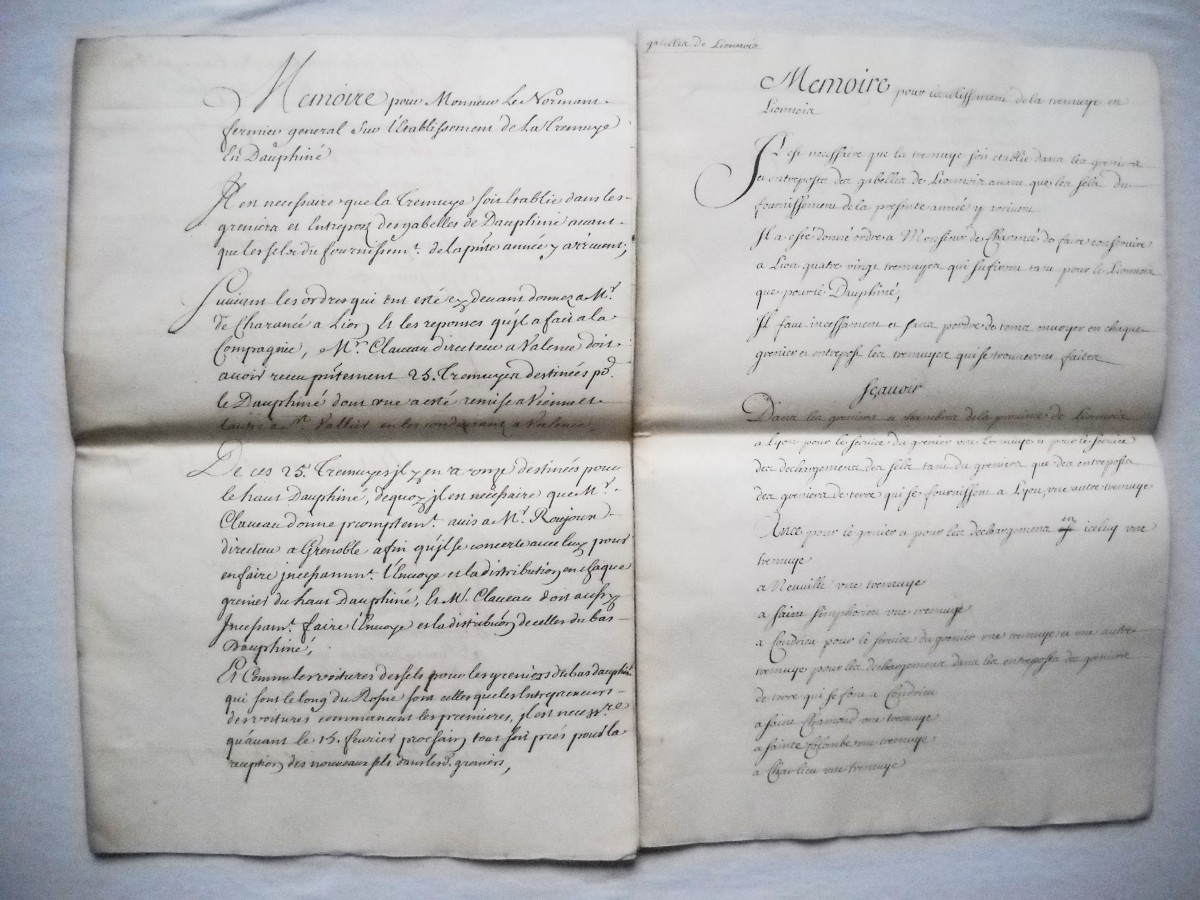 Memoire pour Monsieur Le Normant
fermier general Sur l'Etablissement de La Tremuye
En Dauphiné
Il en necessaire que la Tremuye soit Etablie dans les
greniers et Entrepos des gabelles de Dauphiné auant
que les sels du fournissemt. de la pnte année y arriuent,
Suiuant les ordres qui ont esté cy deuant donnez a Mr.
de Charancé a Lion, Et les reponses qu'il a fait a la
Compagnie, Mr. Claueau directeur a Valence doit
auoir receu pntement 25. Tremuyes destinées pr.
le Dauphiné dont une a esté remise a Vienne et
l'autre a St. Vallier en les conduisant a Valence,
De ces 25. Tremuyes jl y en a onze destinées pour
le haut Dauphiné, dequoy jl est necessaire que Mr.
Claueau donne promptemt. auis a Mr. Roujoun
directeur a Grenoble afin qu'jl se concerte auec luy pour
en faire jncessammt. l'Enuoye et la distribution en chaque
grenier du haut Dauphiné, Et Mr. Claueau doit aussy
Jncessamt. faire l'Enuoye et la distribution de celles du bas
Dauphiné,
Et Comme les voitures des sels pour les greniers du bas dauphiné
qui sont le long du Rosne sont celles que les Entrepreneurs
des voitures commancent les premieres, jl est necessre
qu'auant le 15. feurier prochain, tout soit prest pour la
reception des nouueaux sels dans lesd. greniers,
gabelles de Lionnois
Memoire pour l'establissement de la tremuye en
Lionnois
Il est necessaire que la tremuye soit etablie dans les greniers
et entreposts des gabelles de Lionnois auant que les sels du
fournissement de la presente année y arriuent
Il a esté donné ordre a Monsieur de Charancé de faire construire
a Lion quatre vingt tremuyes qui sufiront tant pour le Lionnois
que pour le Dauphiné,
Il faut incessamment et sans perdre de tems enuoyer en chaque
grenier et entrepost les tremuyes qui se trouueront faites
Sçauoir
Dans les greniers et chambres de la prouince de Lionnois
a Lyon pour le seruice du grenier une tremuye et pour le seruice
des dechargemens des sels tant du greniers que des entreposts
des greniers de terre qui se fournissent a Lyon, une autre tremuye
Ance pour le grenier et pour les dechargemens en icelluy une
tremuye
a Neuuille une tremuye
a saint simphorien une tremuye
a Condrieu pour le seruice du grenier une tremuye et une autre
tremuye pour les dechargemens dans les entreposts des greniers
de terre qui se font a Condrieu
a saint Chamond une tremuye
a sainte Colombe une tremuye
a Charlieu une tremuye